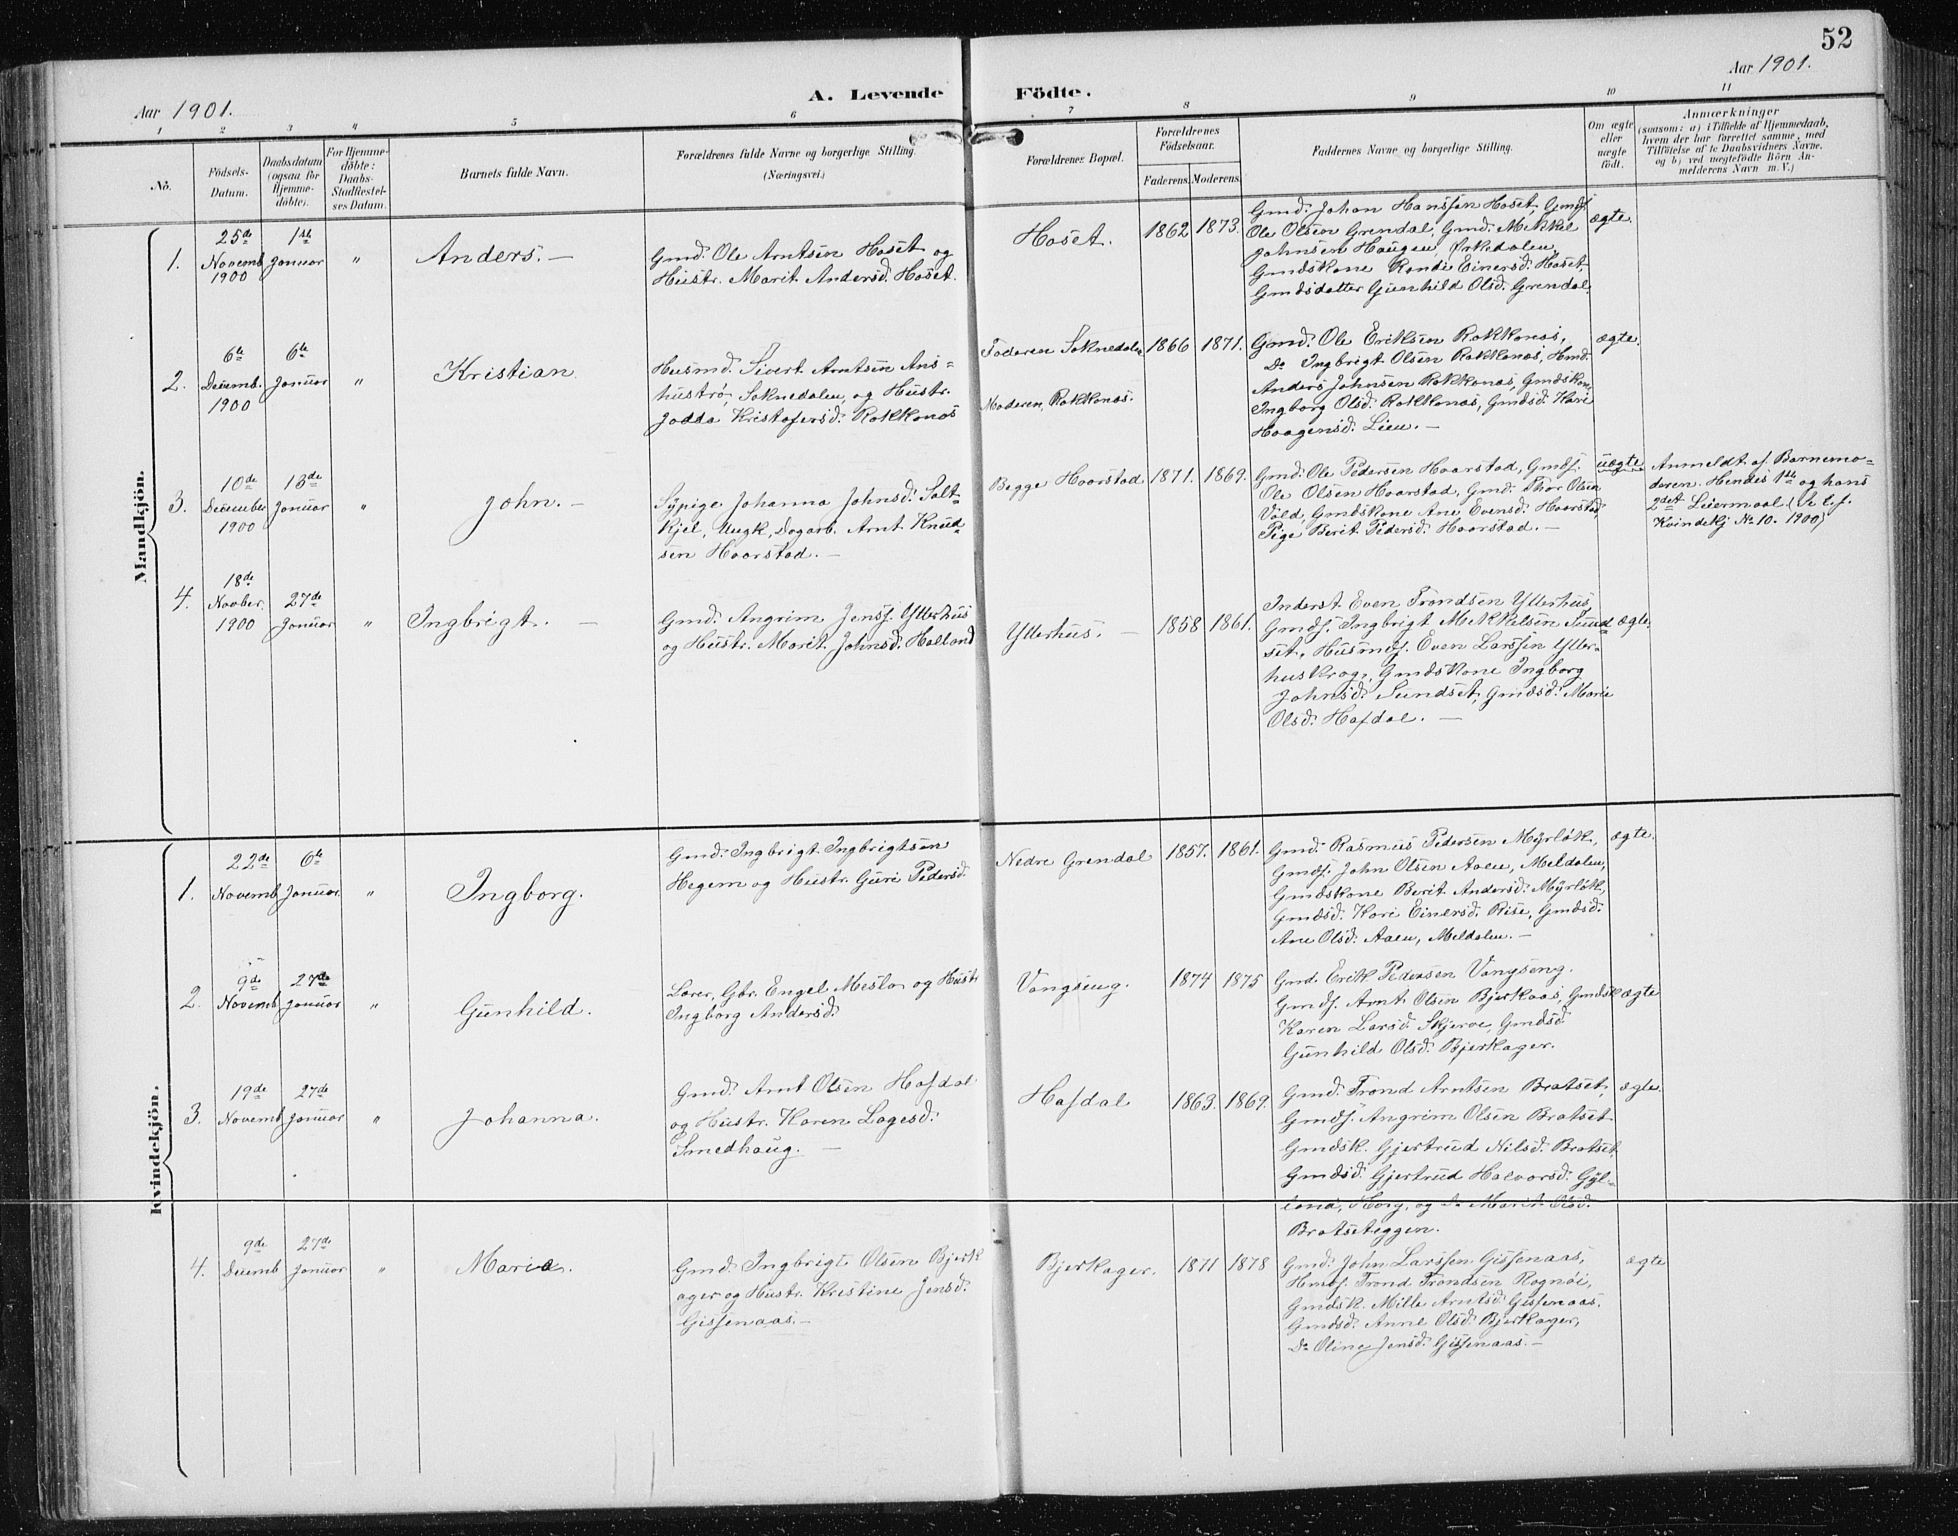 52
Aar 1901.
A. Levende Födte.
Aar 1901.
1 2 3 4 5 6 7 8 9 10 11
No.
Födsels-
Datum.
Daabsdatum
(ogsaa for
Hjemme-
döbte).
For Hjemme-
döbte:
Daabs-
Stadfæstel-
ses Datum.
Barnets fulde Navn.
Forældrenes fulde Navne og borgerlige Stilling.
(Næringsvei.)
Forældrenes Bopæl.
Forældrenes
Födselsaar.
Faderens. Moderens.
Faddernes Navne og borgerlige Stilling.
Om ægte
eller
uægte
födt.
Anmærkninger
(saasom: a) i Tilfælde af Hjemmedaab,
hvem der har forrettet samme, med
Tilföielse af to Daabsvidners Navne,
og b) ved uægtefödte Börn An-
melderens Navn m. V.)
Mandkjön.
1.
25de
Novemb.
1900
1ste
Januar
"
Anders. —
Gmd. Ole Arntsen Hoset og
Hustr. Marit Andersd. Hoset.
Hoset.
1862
1873.
Gmd. Johan Hanssen Hoset, Gmds.
Ole Olsen Grendal, Gmd. Mekkel
Johnsen Haugen, Örkedalen,
Gmdskone Randi Einersd. Hoset,
Gmdsdatter Gunhild Olsd. Grendal.
ægte.
2.
6te
Decemb.
1900
6te
Januar
"
Kristian
Husmd. Sivert Arntsen Aas-
hustrø, Soknedalen, og Hustr.
Jodda Kristofersd. Rokkones
Faderen Soknedalen
Moderen, Rokkones.
1866
1871.
Gmd. Ole Eriksen Rokkones,
Do Ingbrigt Olsen Rokkones, Hmd.
Anders Johnsen Rokkones, Gmdskone
Ingborg Olsd. Rokkones, Gmdsd. Kari
Haagensd. Lien. —
ægte.
3.
10de
December
1900
13de
Januar
"
John. —
Sypige Johanna Johnsd. Salt-
kjel, Ungk, Dagarb. Arnt Knud-
sen Haarstad. —
Begge Haarstad
1871.
1869.
Gmd. Ole Pedersen Haarstad, Gmds.
Ole Olsen Haarstad, Gmd. Thor Olsen
Vold, Gmdskone Ane Evensd. Haarstad,
Pige Berit Pedersd. Haarstad. —
uægte
Anmeldt af Barnemo-
deren. Hendes 1ste og hans
2det Leiermaal (Se L.f.
Kvindekj No 10. 1900)
4.
18de
Novber.
1900
27de
Januar
"
Ingbrigt. —
Gmd. Angrim Jensf. Ytterhus
og Hustr. Marit Johnsd. Halland
Ytterhus. —
1858
1861.
Inderst Even Trondsen Ytterhus,
Gmds. Ingbrigt Mekkelsen Sund-
set, Husmds. Even Larssen Ytter-
huskrog, Gmdskone Ingborg
Johnsd. Sundset, Gmdsd. Marie
Olsd. Hafdal. —
ægte.
Kvindekjön.
1.
22de
Novemb.
6te
Januar
"
Ingborg.
Gmd. Ingbrigt Ingbrigtsen
Hegem og Hustr. Guri Pedersd.
Nedre Grendal
1857.
1861.
Gmd. Rasmus Pedersen Myrløk,
Gmds. John Olsen Aaeu, Meldalen,
Gmdskone Berit Andersd. Myrløk,
Gmdsd. Kari Einersd. Rise, Gmdsd.
Ane Olsd. Aaeu, Meldalen. —
ægte.
2.
9de
Novemb.
27de
Januar
"
Gunhild.
Lærer, Gbr. Engel Meslo og Hustr
Ingborg Andersd.
Vongseng.
1874
1875
Gmd. Erik Pedersen Vangseng.
Gmds. Arnt Olsen Bjerkaas, Gmdsk
Karen Larsd. Skjerve, Gmdsd.
Gunhild Olsd. Bjerkager.
ægte
3.
19de
Novemb.
27de
Januar
"
Johanna.
Gmd. Arnt Olsen Hafdal
og Hustr. Karen Lagesd.
Smedhaug. —
Hafdal
1863.
1869.
Gmd. Trond Arntsen Bratset,
Gmds. Angrim Olsen Bratset
Gmdsk. Gjertrud Nilsd. Bratset,
Gmdsd. Gjertrud Halvorsd. Gyl-
land, Horg, og do Marit Olsd.
Bratseteggen.
ægte
4.
9de
Decemb.
27de
Januar
"
Maria.
Gmd. Ingbrigt Olsen Bjerk
ager og Hustr. Kristine Jensd.
Gissenaas. —
Bjerkager.
1871
1878
Gmd. John Larssen Gissenaas,
Hmds. Trond Trondsen Rognøi,
Gmdsk. Mille Arntsd. Gissenaas.
Gmdsd. Anne Olsd. Bjerkager,
Do Oline Jensd. Gissenaas. —
ægte